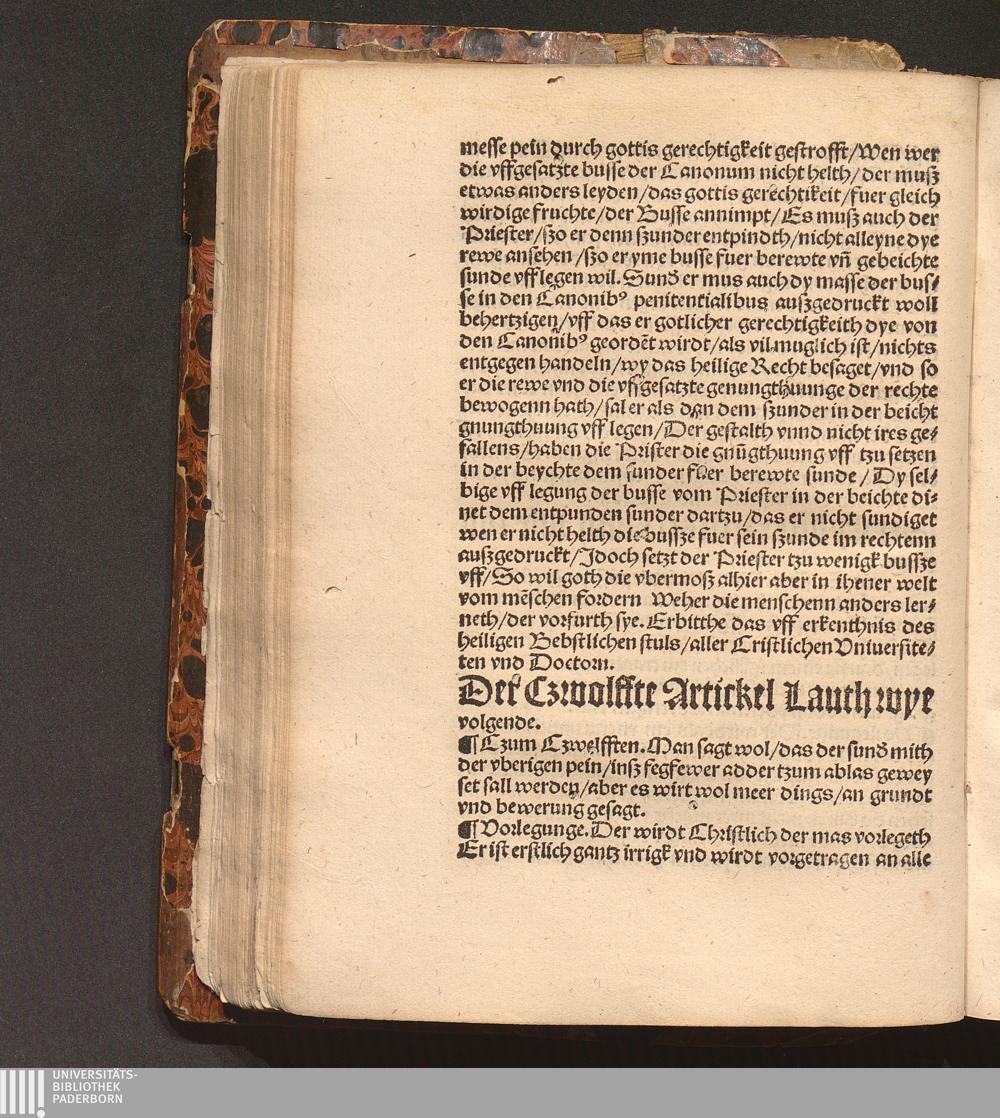 messe pein durch gottis gerechtigkeit gestrofft/Wen wer
die vffgesatzte busse der Canonum nicht helth/der muß
etwas anders leyden/das gottis gerechtikeit/fuer gleich
wirdige fruchte/der Busse annimpt/Es muß auch der
Priester/ßo er denn ßunder entpindth/nicht alleyne dye
rewe ansehen/ßo er yme busse fuer berewte vñ gebeichte
sunde vfflegen wil. Sunð er mus auch dy masse der bus⸗
se in den Canonibꝰ penitentialibus außgedruckt woll
behertzigen/vff das er gotlicher gerechtigkeith dye von
den Canonibꝰ geordēt wirdt/als vil muglich ist/nichts
entgegen handeln/wy das heilige Recht besaget/vnd so
er die rewe vnd die vffgesatzte genungthuunge der rechte
bewogenn hath/sal er als dan dem ßunder in der beicht
gnungthuung vff legen/Der gestalth vnnd nicht ires ge⸗
fallens/haben die Prister die gnūgthuung vff tzu setzen
in der beychte dem sunder fuer berewte sunde/Dy sel⸗
bige vff legung der busse vom Priester in der beichte di⸗
net dem entpunden sunder dartzu/das er nicht sundiget
wen er nicht helth die bussze fuer sein ßunde im rechtenn
außgedruckt/Jdoch setzt der Priester tzu wenigk bussze
vff/So wil goth die vbermoß alhier aber in ihener welt
vom mēschen fordern Weher die menschenn anders ler⸗
neth/der vorfurth sye. Erbitthe das vff erkenthnis des
heiligen Bebstlichen stuls/aller Cristlichen Vniuersite⸗
ten vnd Doctorn.
Der Czwolffte Artickel Lauth wye
volgende.
¶ Czum Czwelfften. Man sagt wol/das der sunð mith
der vberigen pein/insz fegfewer adder tzum ablas gewey
set sall werden/aber es wirt wol meer dings/an grundt
vnd bewerung gesagt.
¶ Vorlegunge. Der wirdt Christlich der mas vorlegeth
Er ist erstlich gantz irrigk vnd wirdt vorgetragen an alle
UNIVERSITÄTS-
BIBLIOTHEK
PADERBORN